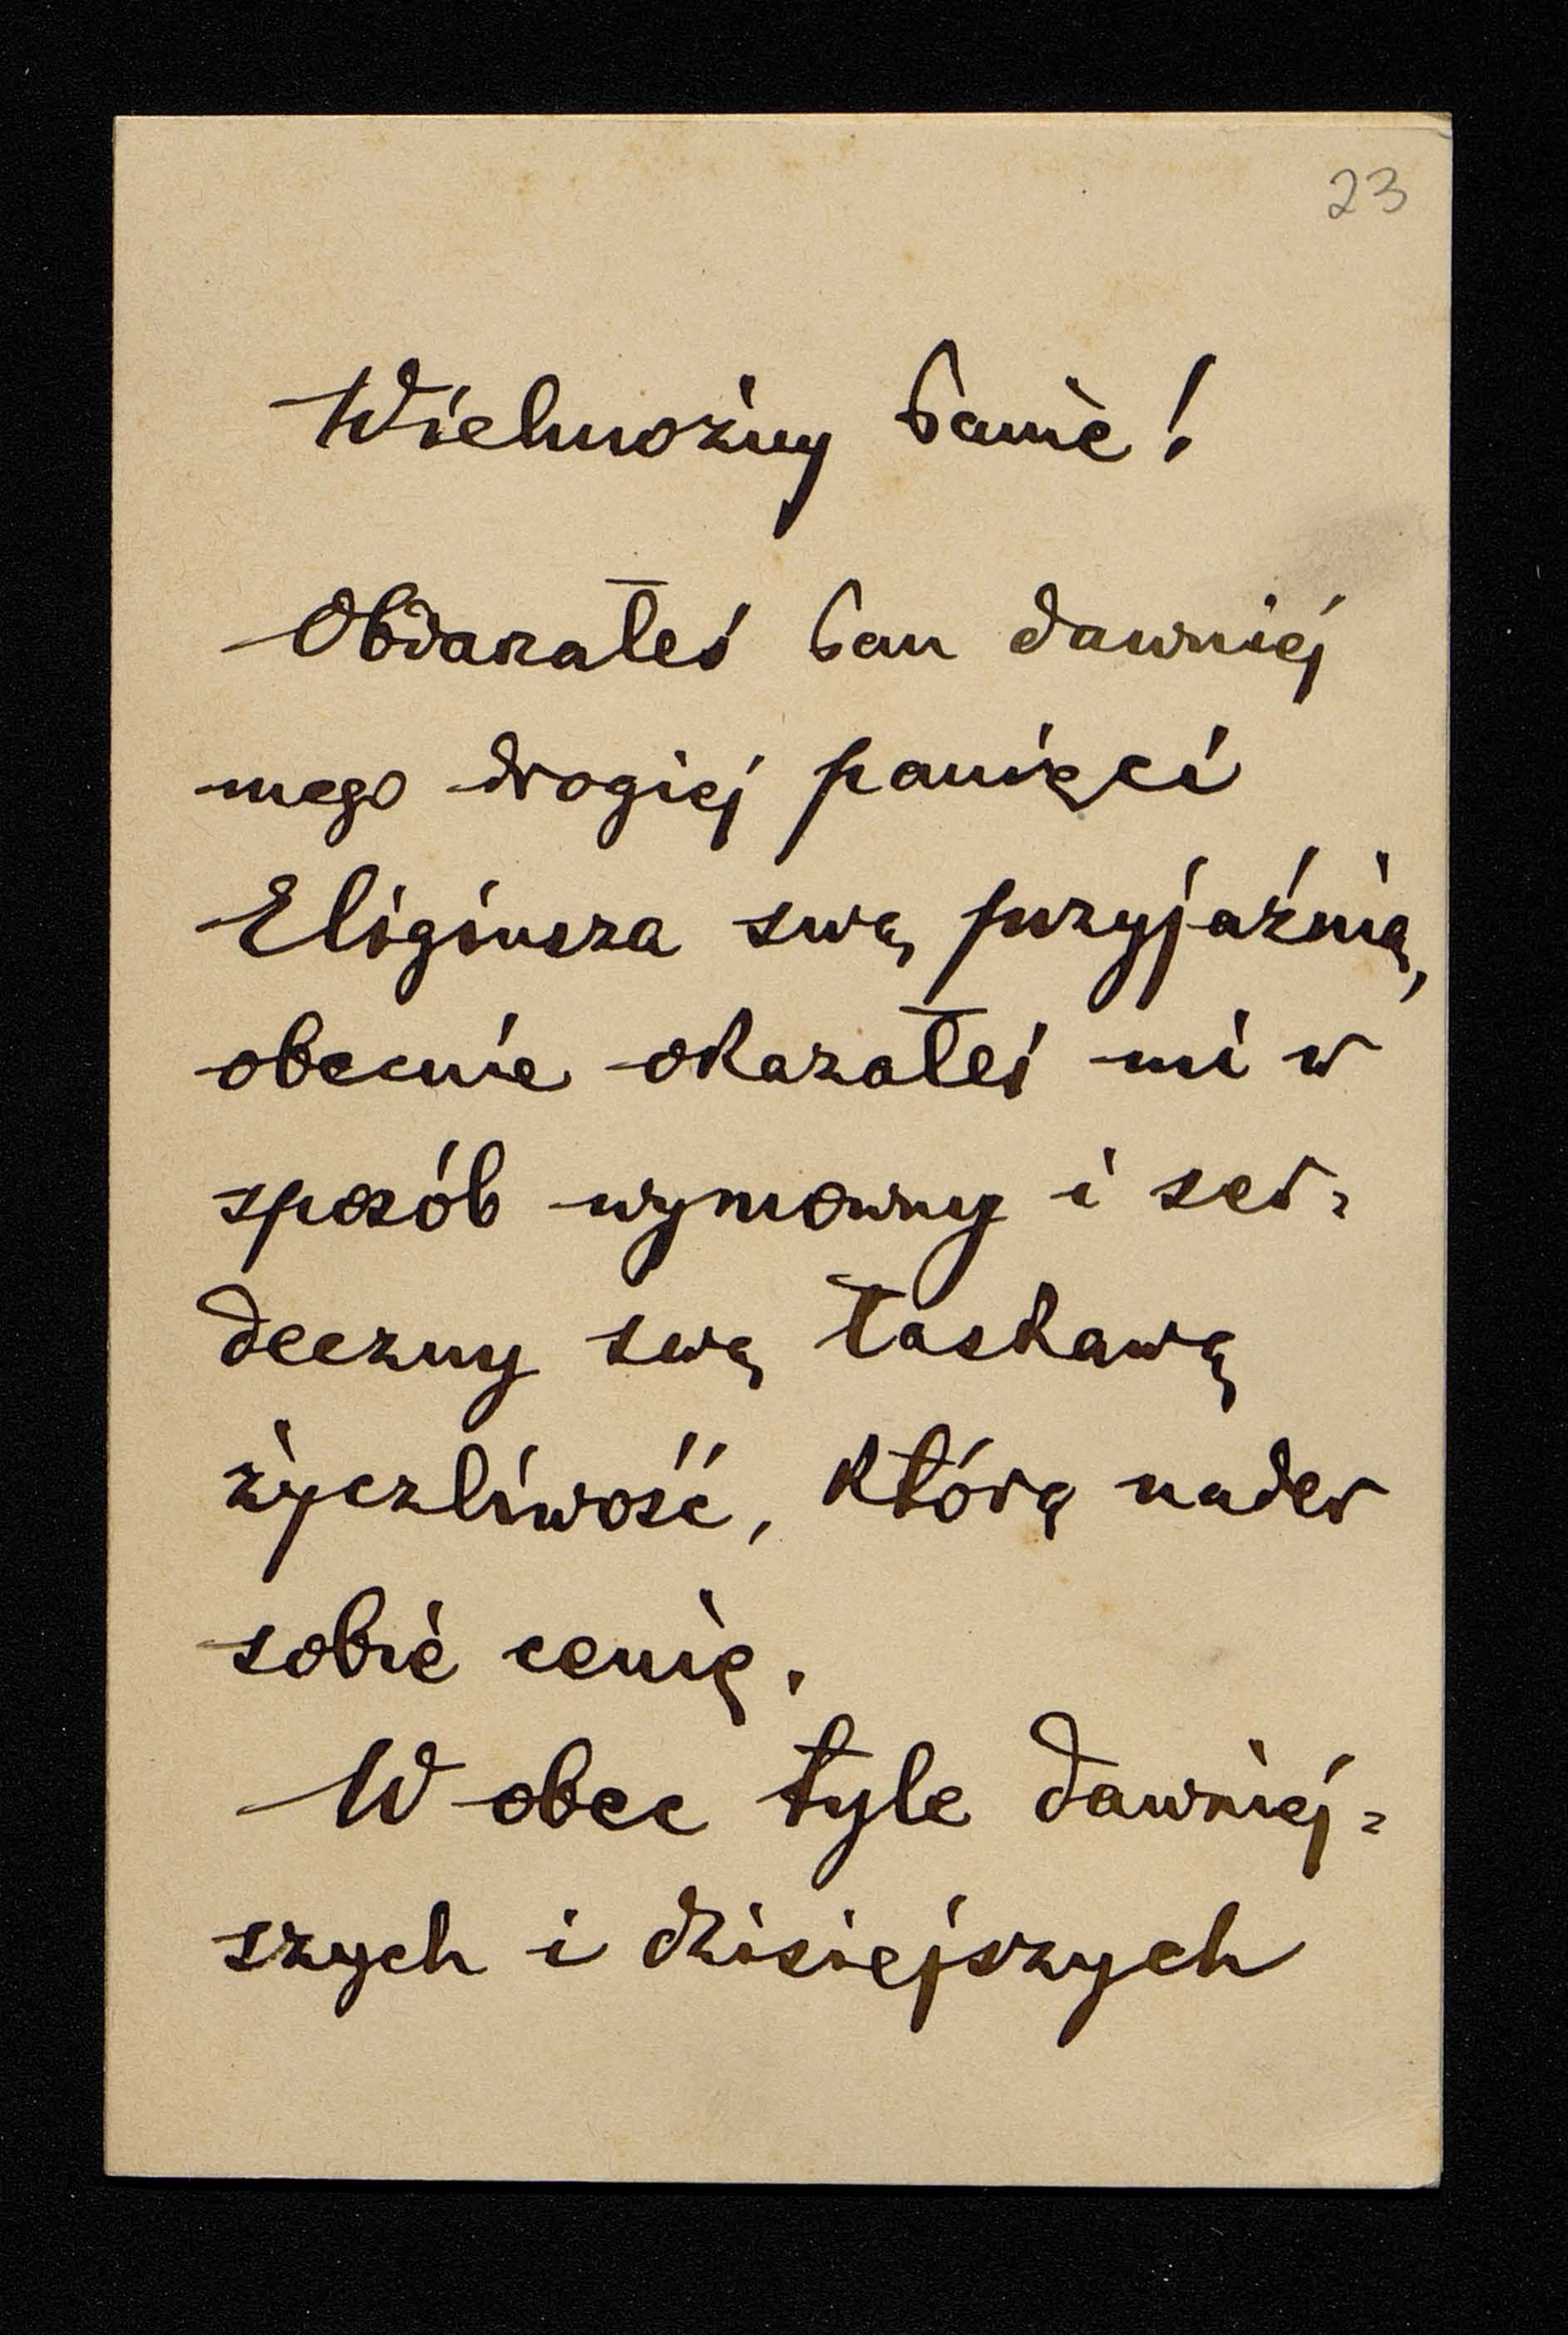 23
Wielmożny Panie!
Obdarzałeś Pan dawniej
mego drogiej pamięci
Eligiusza swą przyjaźnią,
obecnie okazałeś mi w
sposób wymowny i ser=
deczny swą łaskawą
życzliwość, którą nader
sobie cenię.
W obec tyle dawniej=
szych i dzisiejszych